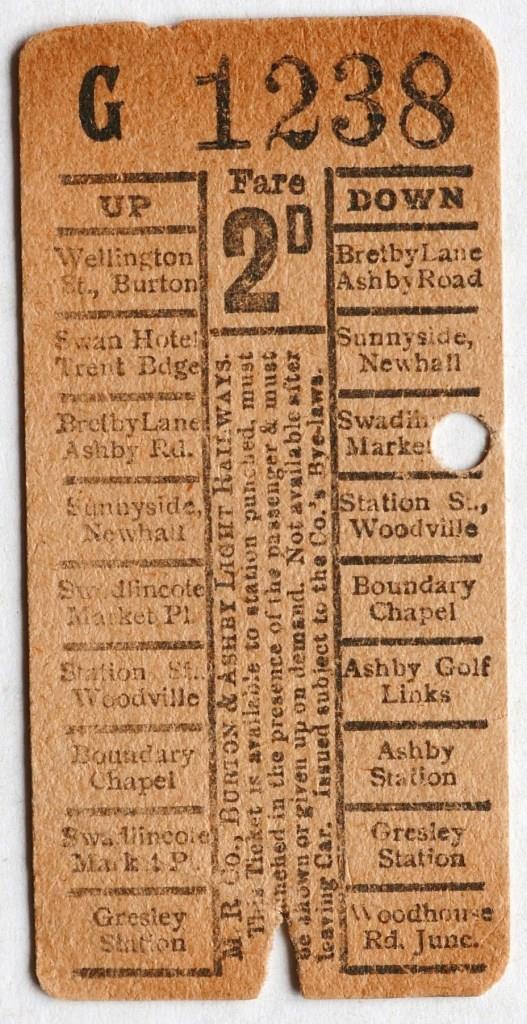 G 1238
UP
Wellington
St., Burton
Swan Hotel
Trent Bdge
Bretby Lane
Ashby Rd.
Sunnyside,
Newhall
Swadlincote
Market Pl.
Station St.,
Woodville
Boundary
Chapel
Swadlincote
Mark t P
Gresley
Station
Fare
2D
M. R. Co., BURTON & ASHBY LIGHT RAILWAYS.
This Ticket is available to station punched, must
be punched in the presence of the passenger & must
be shown or given up on demand. Not available after
leaving Car. Issued subject to the Co.'s Bye-laws.
DOWN
Bretby Lane
Ashby Road
Sunnyside,
Newhall
Swadlin s
Marke
Station St.,
Woodville
Boundary
Chapel
Ashby Golf
Links
Ashby
Station
Gresley
Station
Woodhouse
Rd. Junc.